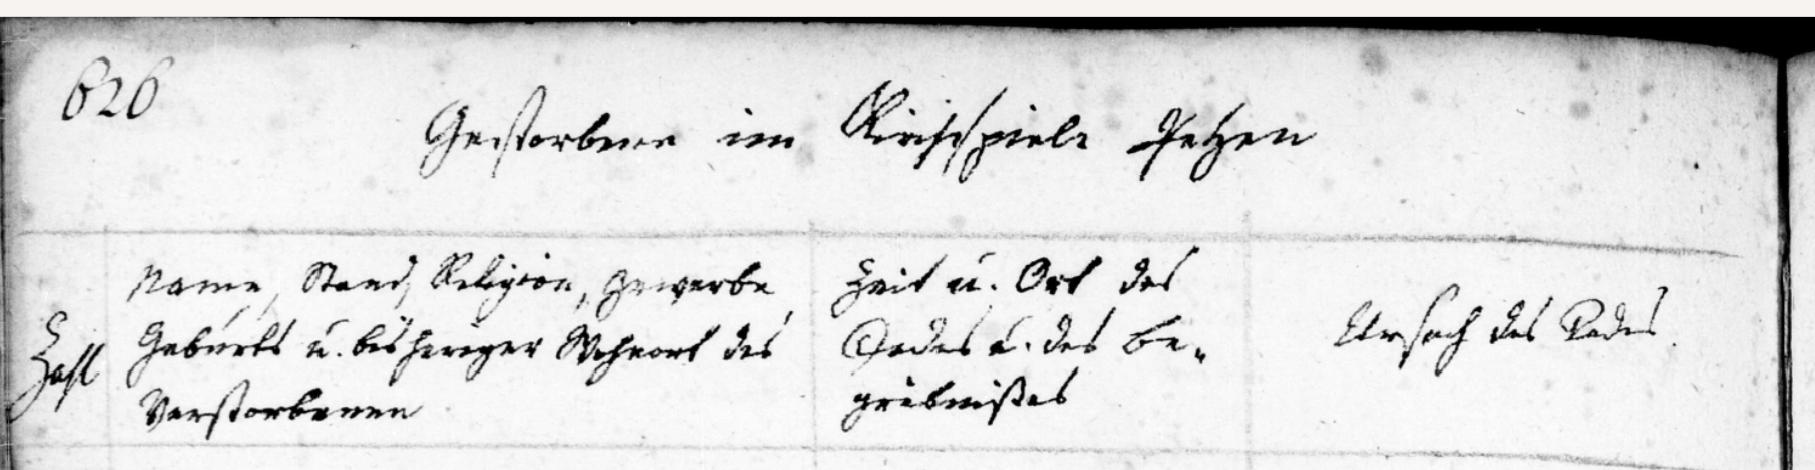 626
Gestorbene im Kirchspiele Petzen
Zahl
Name, Stand, Religion, Gewerbe,
Geburts u. bisheriger Wohnort des
Verstorbenen
Zeit u. Ort des
Todes u. des Be-
gräbnißes
Ursach des Todes.